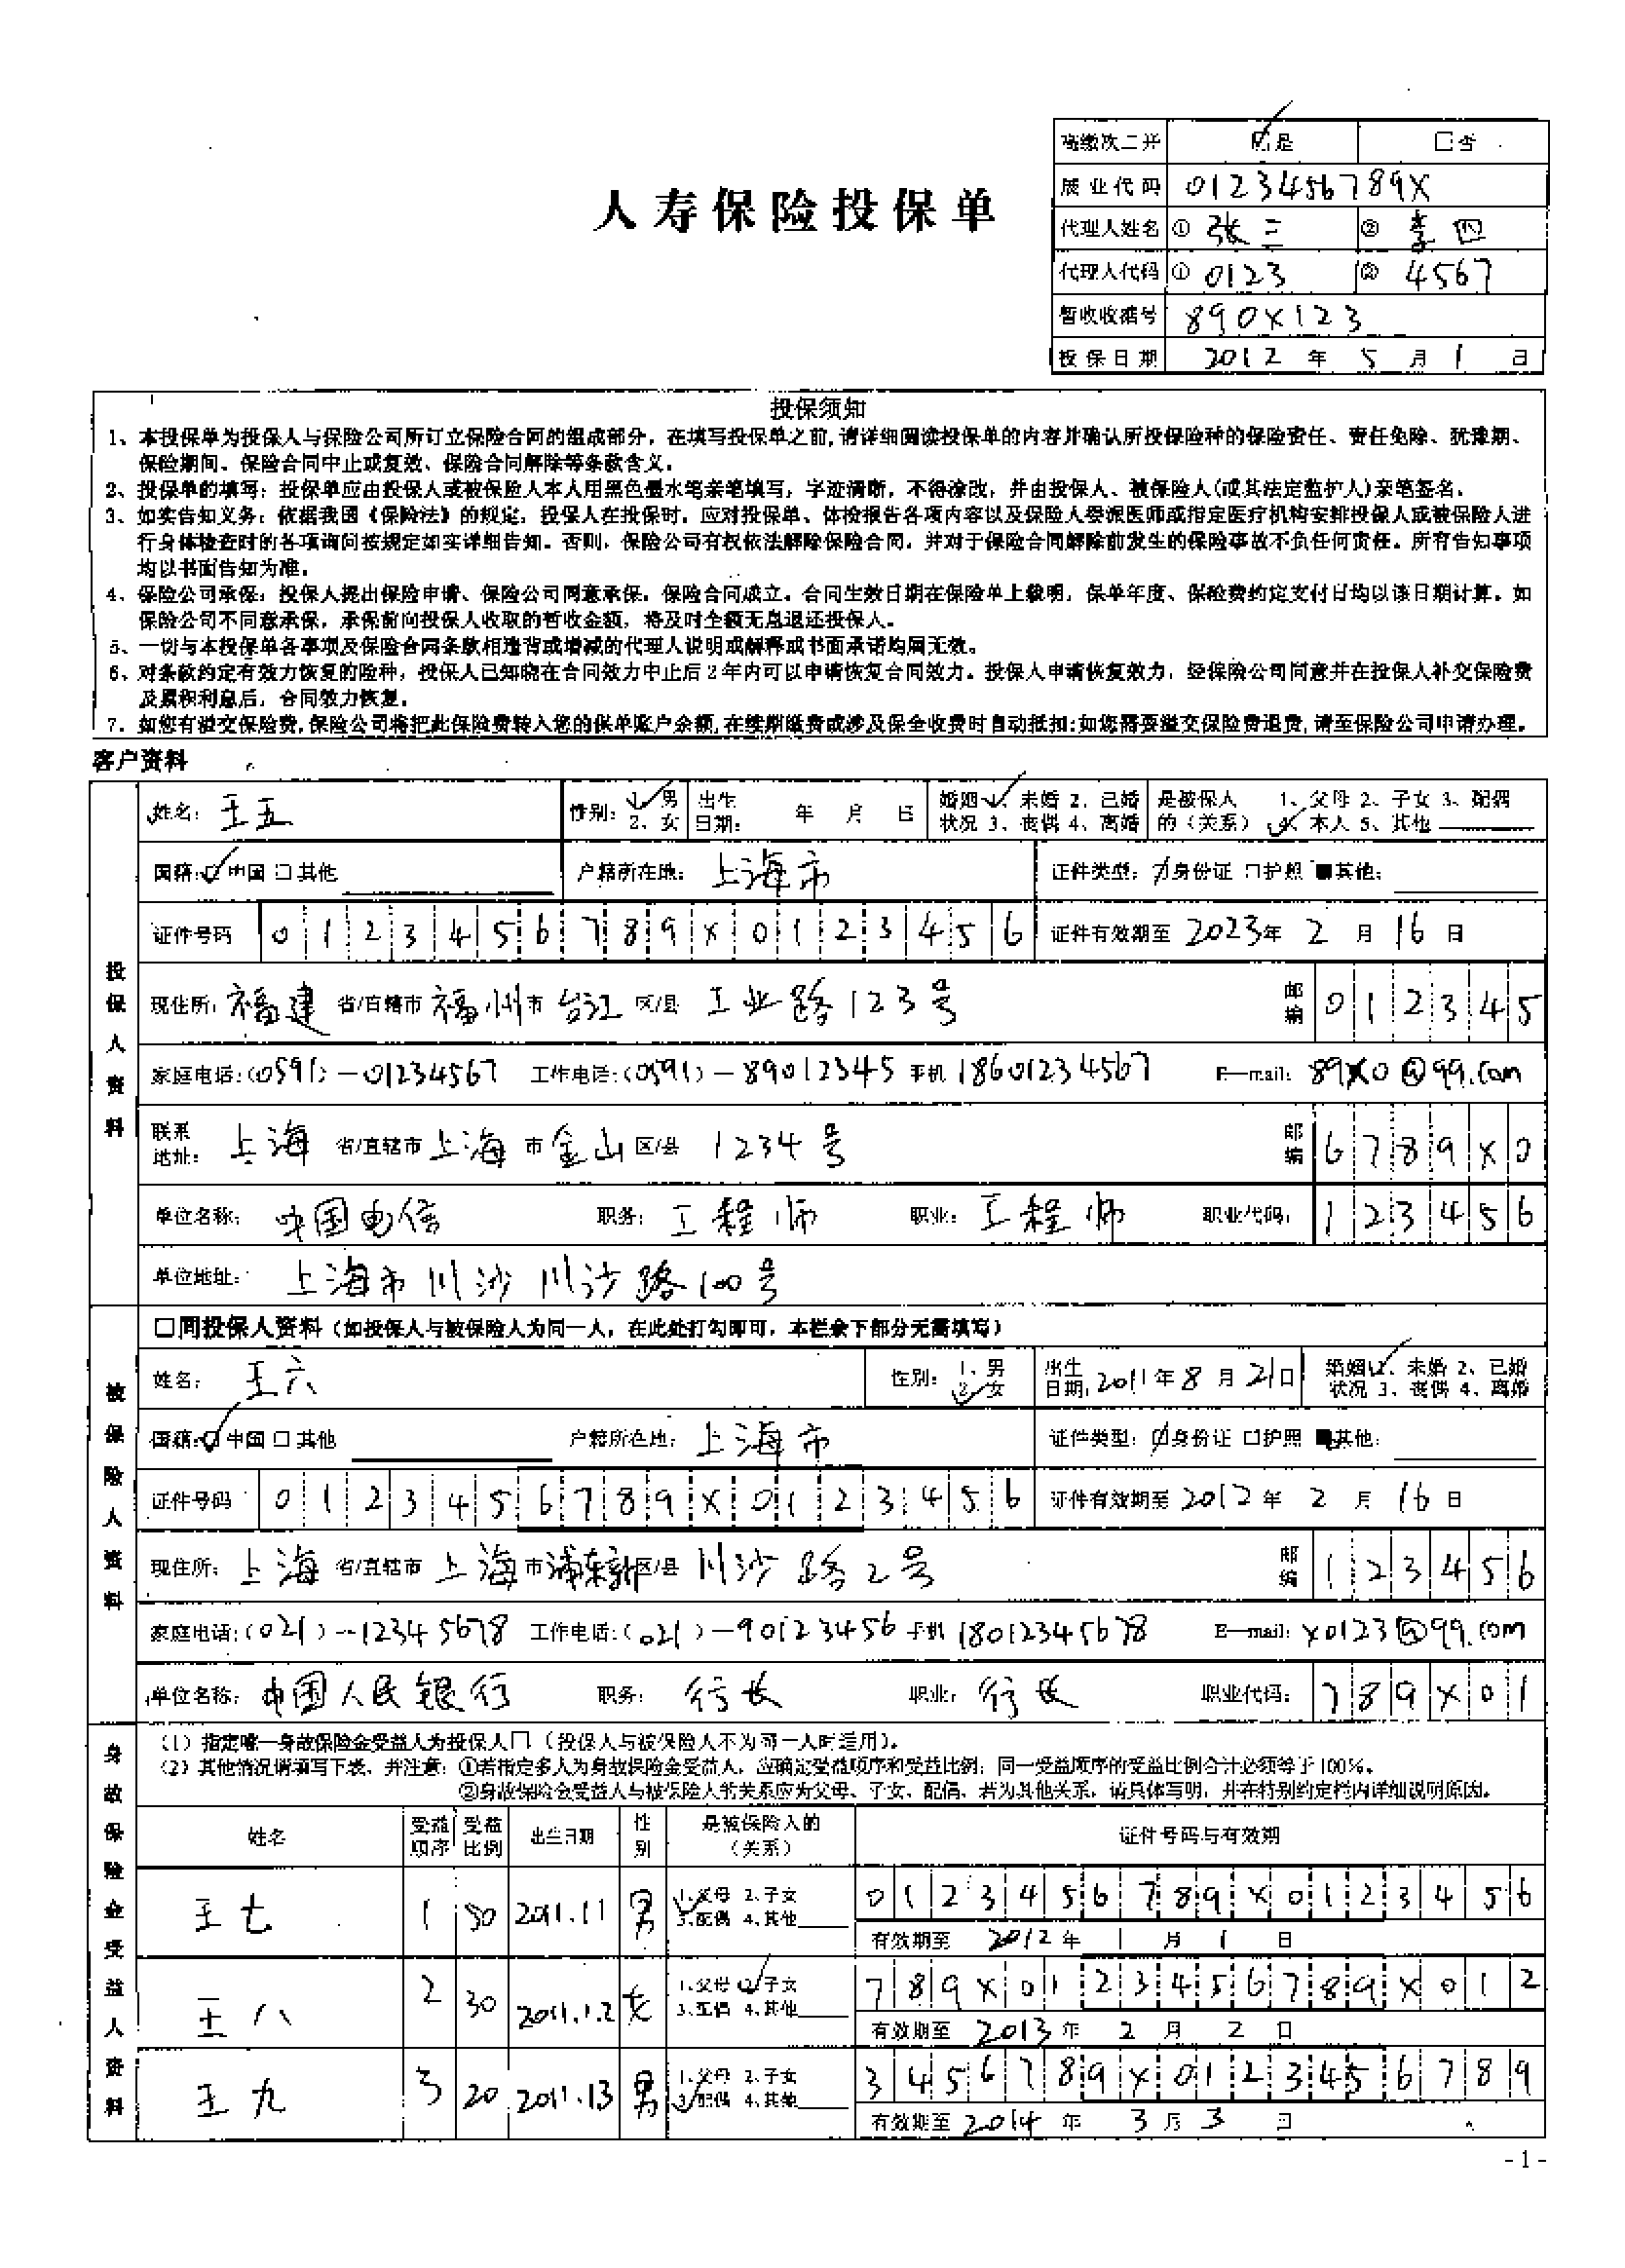 人寿保险投保单
高缴次二并 ☑是 □否
展业代码 0123456789X
代理人姓名 ① 张三 ② 李四
代理人代码 ① 0123 ② 4567
暂收收据号 890X123
投保日期 2012 年 5 月 1 日
投保须知
1、本投保单为投保人与保险公司所订立保险合同的组成部分。在填写投保单之前,请详细阅读投保单的内容并确认所投保险种的保险责任、责任免除、犹豫期、
保险期间、保险合同中止或复效、保险合同解除等条款含义。
2、投保单的填写:投保单应由投保人或被保险人本人用黑色墨水笔亲笔填写,字迹清晰,不得涂改,并由投保人、被保险人(或其法定监护人)亲笔签名。
3、如实告知义务:依据我国《保险法》的规定,投保人在投保时,应对投保单、体检报告各项内容以及保险人委派医师或指定医疗机构安排投保人或被保险人进
行身体检查时的各项询问按规定如实详细告知。否则,保险公司有权依法解除保险合同,并对于保险合同解除前发生的保险事故不负任何责任。所有告知事项
均以书面告知为准。
4、保险公司承保:投保人提出保险申请、保险公司同意承保,保险合同成立。合同生效日期在保险单上载明,保单年度、保险费约定支付日均以该日期计算。如
保险公司不同意承保,承保前向投保人收取的暂收金额,将及时全额无息退还投保人。
5、一切与本投保单各事项及保险合同条款相违背或增减的代理人说明或解释或书面承诺均属无效。
6、对条款约定有效力恢复的险种,投保人已知晓在合同效力中止后2年内可以申请恢复合同效力。投保人申请恢复效力,经保险公司同意并在投保人补交保险费
及累积利息后,合同效力恢复。
7、如您有溢交保险费,保险公司将把此保险费转入您的保单账户余额,在续期缴费或涉及保全收费时自动抵扣;如您需要溢交保险费退费,请至保险公司申请办理。
客户资料
投保人资料
姓名: 王五 性别: 1、男 2、女 出生日期: 年 月 日 婚姻状况 1、未婚 2、已婚 3、丧偶 4、离婚 是被保人的(关系) 1、父母 2、子女 3、配偶 4、本人 5、其他
国籍:☑中国 □其他 户籍所在地: 上海市 证件类型:☑身份证 □护照 ■其他:
证件号码 0123456789X0123456 证件有效期至 2023年 2 月 16 日
现住所: 福建 省/直辖市 福州 市 台江 区/县 工业路123号 邮编 012345
家庭电话:(0591)-01234567 工作电话:(0591)-89012345 手机 18601234567 E-mail: 89X0@qq.com
联系地址: 上海 省/直辖市 上海 市 金山 区/县 1234号 邮编 6789X0
单位名称: 中国电信 职务: 工程师 职业: 工程师 职业代码: 123456
单位地址: 上海市川沙川沙路100号
被保险人资料
□同投保人资料(如投保人与被保险人为同一人,在此处打勾即可,本栏余下部分无需填写)
姓名: 王六 性别: 1、男 2、女 出生日期: 2011年 8 月 21日 婚姻状况 1、未婚 2、已婚 3、丧偶 4、离婚
国籍:☑中国 □其他 户籍所在地: 上海市 证件类型:☑身份证 □护照 ■其他:
证件号码 0123456789X0123456 证件有效期至 2012 年 2 月 16 日
现住所: 上海 省/直辖市 上海 市 浦东新 区/县 川沙路2号 邮编 123456
家庭电话:(021)-12345678 工作电话:(021)-90123456 手机 18012345678 E-mail: X0123@qq.com
单位名称: 中国人民银行 职务: 行长 职业: 行长 职业代码: 789X01
身故保险金受益人资料
(1)指定唯一身故保险金受益人为投保人□(投保人与被保险人不为同一人时适用)。
(2)其他情况请填写下表,并注意:①若指定多人为身故保险金受益人,应确定受益顺序和受益比例,同一受益顺序的受益比例合计必须等于100%。
②身故保险金受益人与被保险人的关系应为父母、子女、配偶,若为其他关系,请具体写明,并在特别约定栏内详细说明原因。
姓名 受益顺序 受益比例 出生日期 性别 是被保险人的(关系) 证件号码与有效期
王七 1 50 2011.11 男 1、父母 2、子女 3、配偶 4、其他 0123456789X0123456
有效期至 2012 年 1 月 1 日
王八 2 30 2011.12 女 1、父母 2、子女 3、配偶 4、其他 789X0123456789X012
有效期至 2013 年 2 月 2 日
王九 3 20 2011.13 男 1、父母 2、子女 3、配偶 4、其他 3456789X0123456789
有效期至 2014 年 3 月 3 日
- 1 -